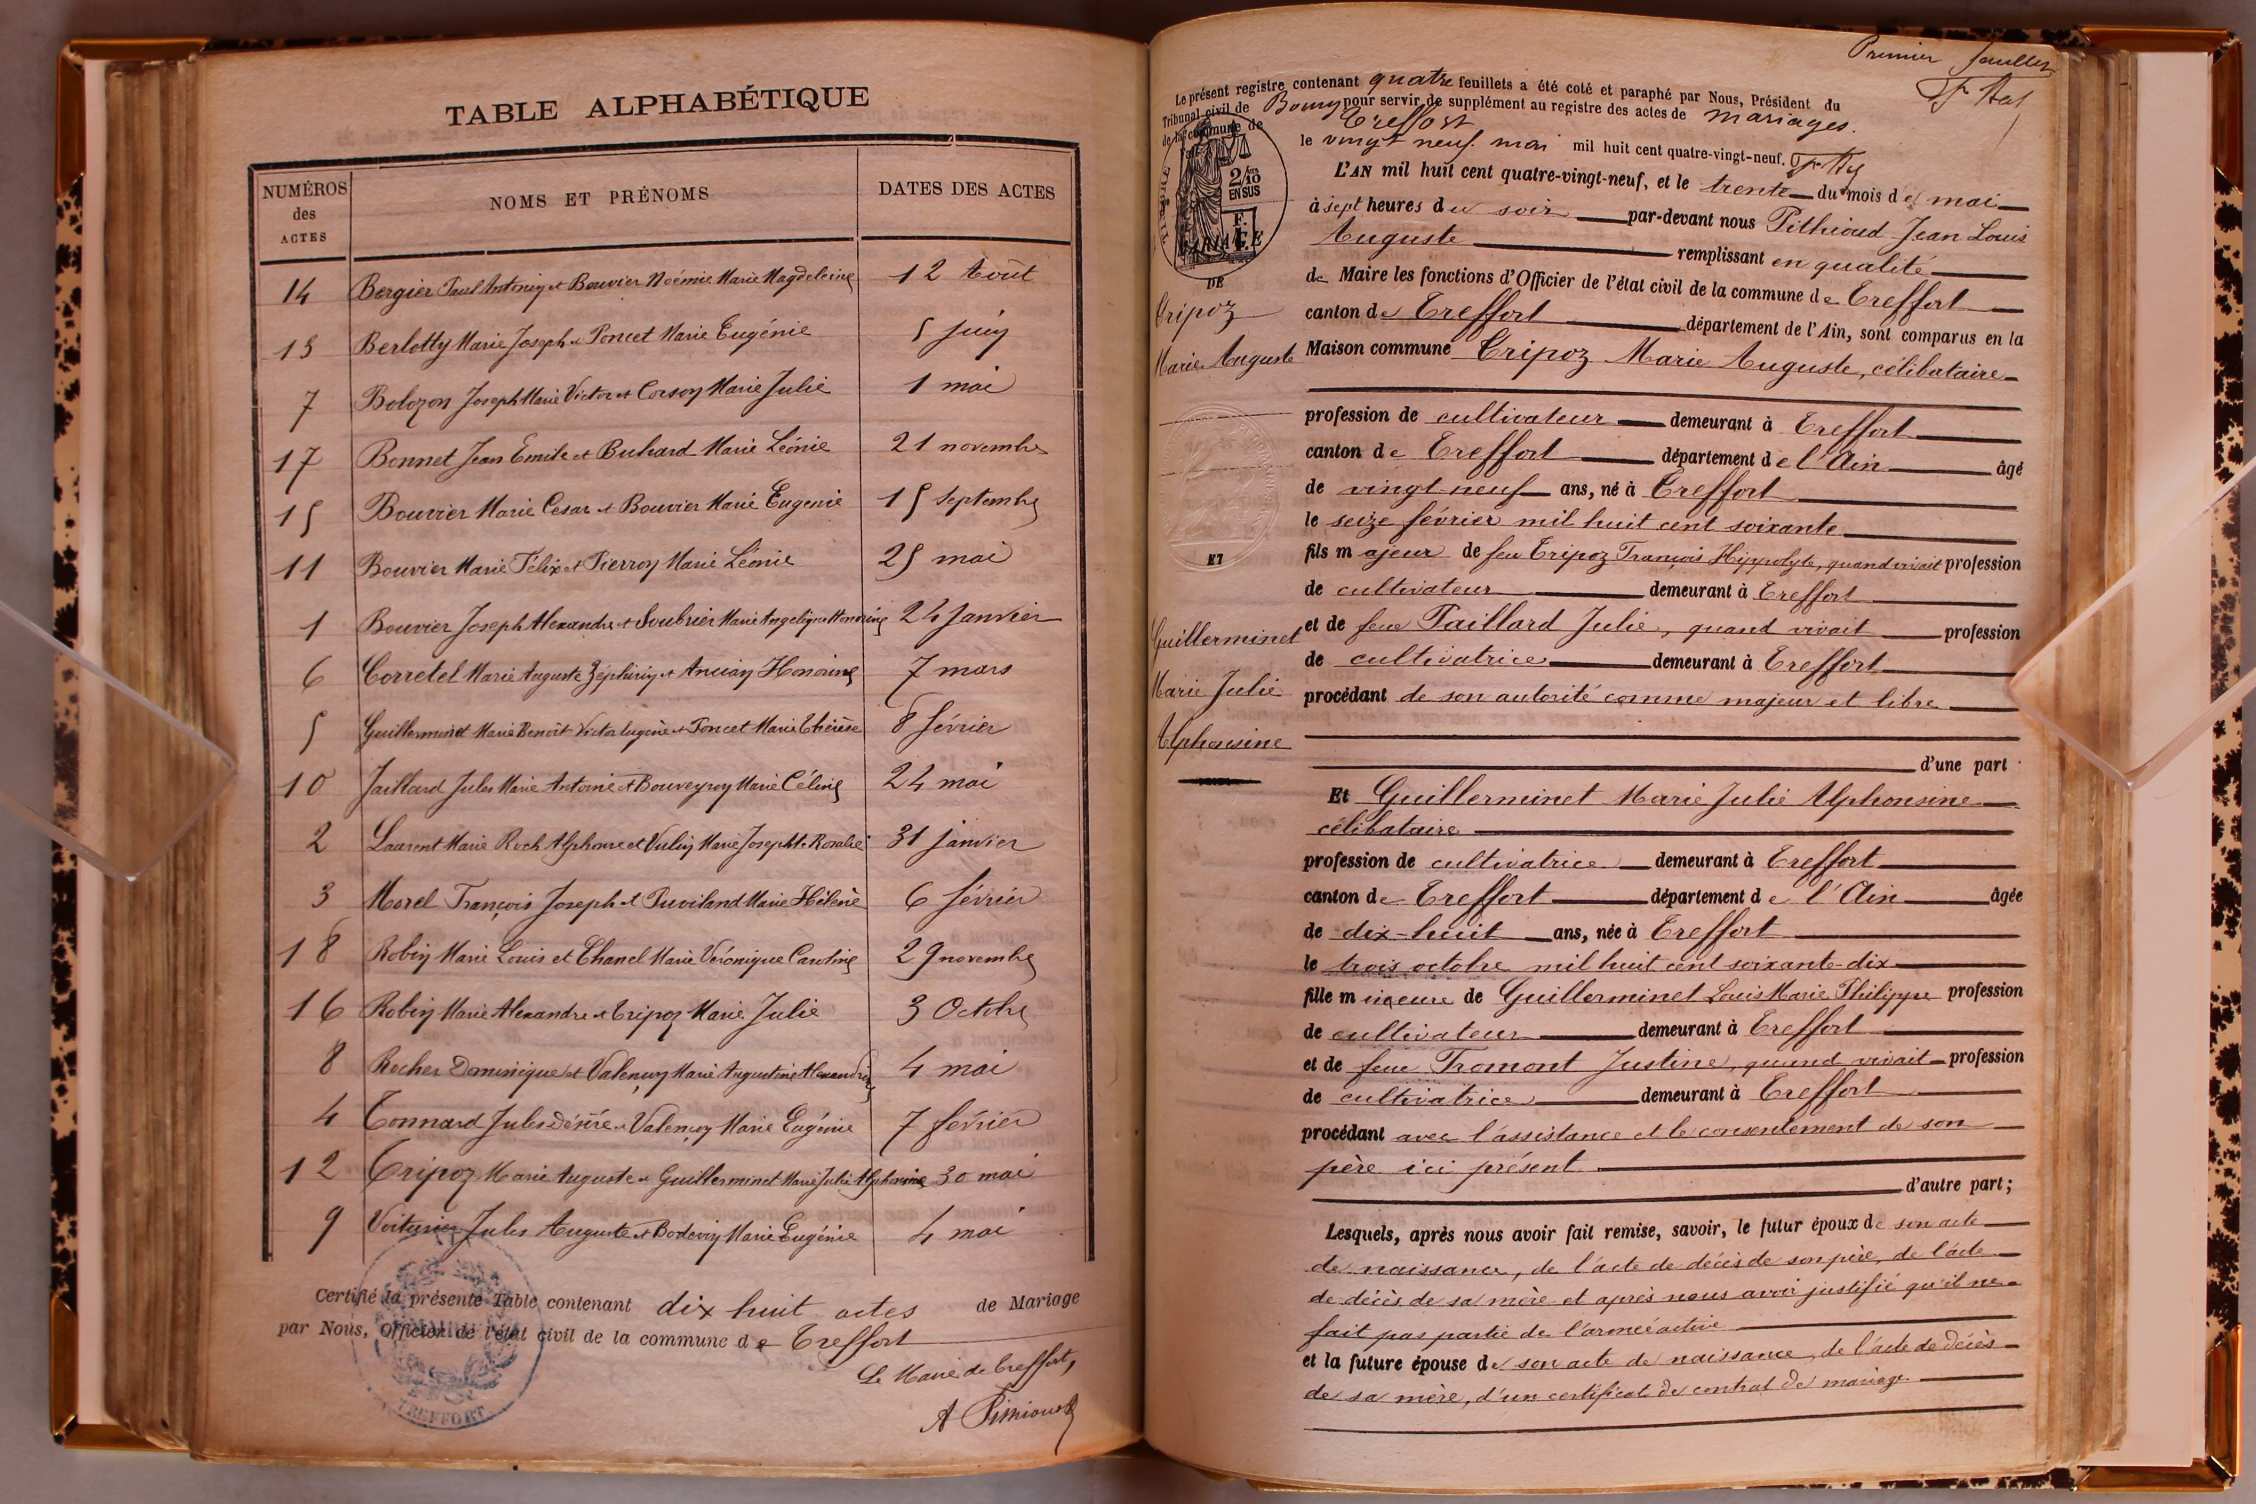 TABLE ALPHABÉTIQUE
NUMÉROS des ACTES NOMS ET PRÉNOMS DATES DES ACTES
14 Bergier Paul Antonin et Bouvier Noémie Marie Magdeleine 12 Août
13 Berlotty Marie Joseph et Poncet Marie Eugénie 5 Juin
7 Bolozon Joseph Marie Victor et Corson Marie Julie 1 mai
17 Bonnet Jean Emile et Buhard Marie Léonie 21 novembre
15 Bouvier Marie César et Bouvier Marie Eugenie 15 Septembre
11 Bouvier Marie Félix et Pierron Marie Léonie 25 mai
1 Bouvier Joseph Alexandre et Soubrier Marie Angelique Honorine 24 Janvier
6 Corretel Marie Auguste Zéphirin et Ancian Honorine 7 mars
5 Guillerminet Marie Benoît Victor Eugène et Poncet Marie Thérèse 8 février
10 Jaillard Jules Marie Antoine et Bouveyron Marie Céline 24 mai
2 Laurent Marie Roch Alphonse et Vulin Marie Josephte Rosalie 31 janvier
3 Morel François Joseph et Puviland Marie Hélène 6 février
18 Robin Marie Louis et Chanel Marie Véronique Caroline 29 novembre
16 Robin Marie Alexandre et Tripoz Marie Julie 3 Octobre
8 Rocher Dominique et Valençon Marie Augustine Alexandrine 4 mai
4 Tonnard Jules Désiré et Valençon Marie Eugénie 7 février
12 Tripoz Marie Auguste et Guillerminet Marie Julie Alphonsine 30 mai
9 Voiturier Jules Auguste et Bodevin Marie Eugénie 4 mai
Certifié la présente Table contenant dix huit actes de Mariage
par Nous, Officier de l'état civil de la commune de Treffort
Le Maire de Treffort,
A Pithioud
TREFFORT
Premier feuillet
Le présent registre contenant quatre feuillets a été coté et paraphé par Nous, Président du
Tribunal civil de Bourg pour servir de supplément au registre des actes de mariages.
de la commune de Treffort
le vingt neuf mai mil huit cent quatre-vingt-neuf.
2/10 EN SUS
MARIAGE
DE
Tripoz
Marie Auguste
ET
Guillerminet
Marie Julie
Alphonsine
L'AN mil huit cent quatre-vingt-neuf, et le trente du mois de mai
à sept heures du soir par-devant nous Pithioud Jean Louis
Auguste remplissant en qualité
de Maire les fonctions d'Officier de l'état civil de la commune de Treffort
canton de Treffort département de l'Ain, sont comparus en la
Maison commune Tripoz Marie Auguste, célibataire
profession de cultivateur demeurant à Treffort
canton de Treffort département de l'Ain âgé
de vingt-neuf ans, né à Treffort
le seize février mil huit cent soixante
fils majeur de feu Tripoz François Hippolyte, quand vivait profession
de cultivateur demeurant à Treffort
et de feue Paillard Julie, quand vivait profession
de cultivatrice demeurant à Treffort
procédant de son autorité comme majeur et libre
d'une part
Et Guillerminet Marie Julie Alphonsine
célibataire
profession de cultivatrice demeurant à Treffort
canton de Treffort département de l'Ain âgée
de dix-huit ans, née à Treffort
le trois octobre mil huit cent soixante-dix
fille mineure de Guillerminet Louis Marie Philippe profession
de cultivateur demeurant à Treffort
et de feue Fromont Justine, quand vivait profession
de cultivatrice demeurant à Treffort
procédant avec l'assistance et le consentement de son
père ici présent
d'autre part;
Lesquels, après nous avoir fait remise, savoir, le futur époux de son acte
de naissance, de l'acte de décès de son père, de l'acte
de décès de sa mère et après nous avoir justifié qu'il ne
fait pas partie de l'armée active
et la future épouse de son acte de naissance, de l'acte de décès
de sa mère, d'un certificat de contrat de mariage.